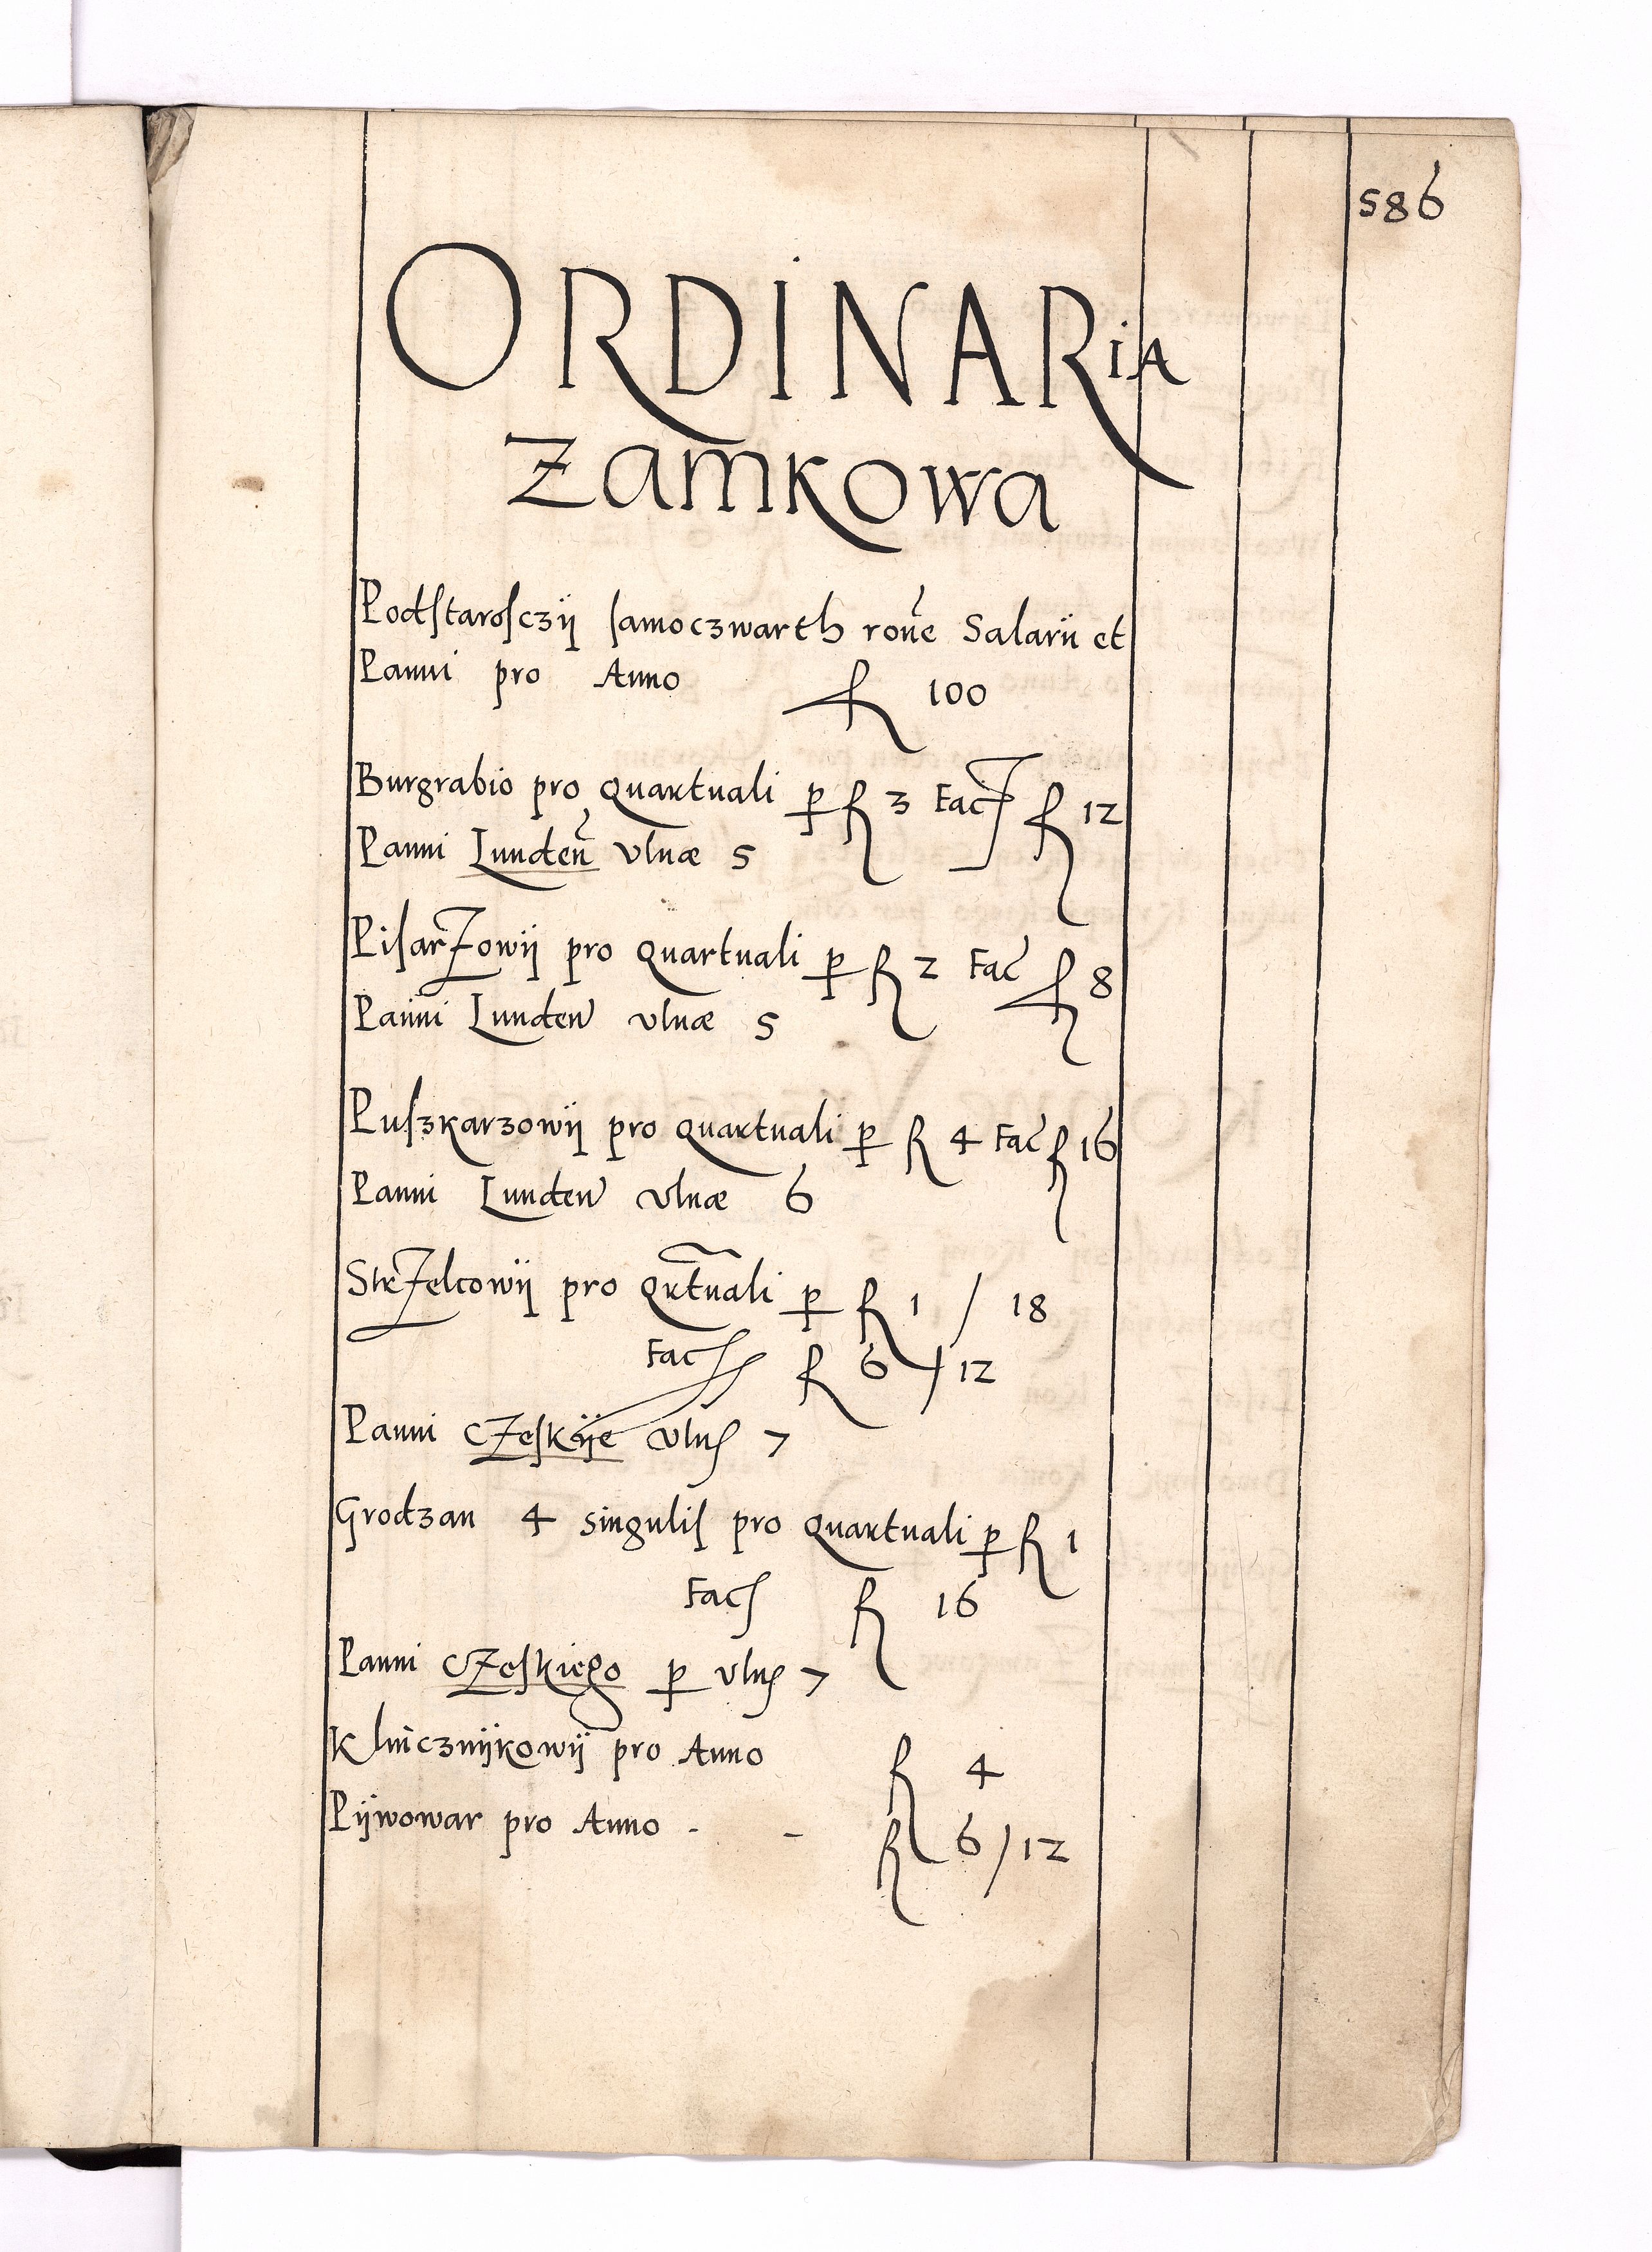 586
ORDINARiA
Zamkowa
Podſtaroſczÿ ſamoczwarth roñe Salarii et
Panni pro Anno fl 100
Burgrabio pro quartuali ꝑ fl 3 Fac fl 12
Panni Lunden̄ vlnæ 5
Piſarzowÿ pro quartuali ꝑ fl 2 Fac fl 8
Panni Lunden vlnæ 5
Puſzkarzowÿ pro quartuali ꝑ fl 4 Fac fl 16
Panni Lunden vlnæ 6
Strzelcowÿ pro qrtuali ꝑ fl 1 / 18
Fac fl 6 / 12
Panni Czeſkÿe vlnę 7
Grodzan 4 singuliſ pro quartuali ꝑ fl 1
Fac fl 16
Panni Czeſkiego ꝑ vlnę 7
Klucznÿkowÿ pro Anno fl 4
Pÿwowar pro Anno - - fl 6 / 12